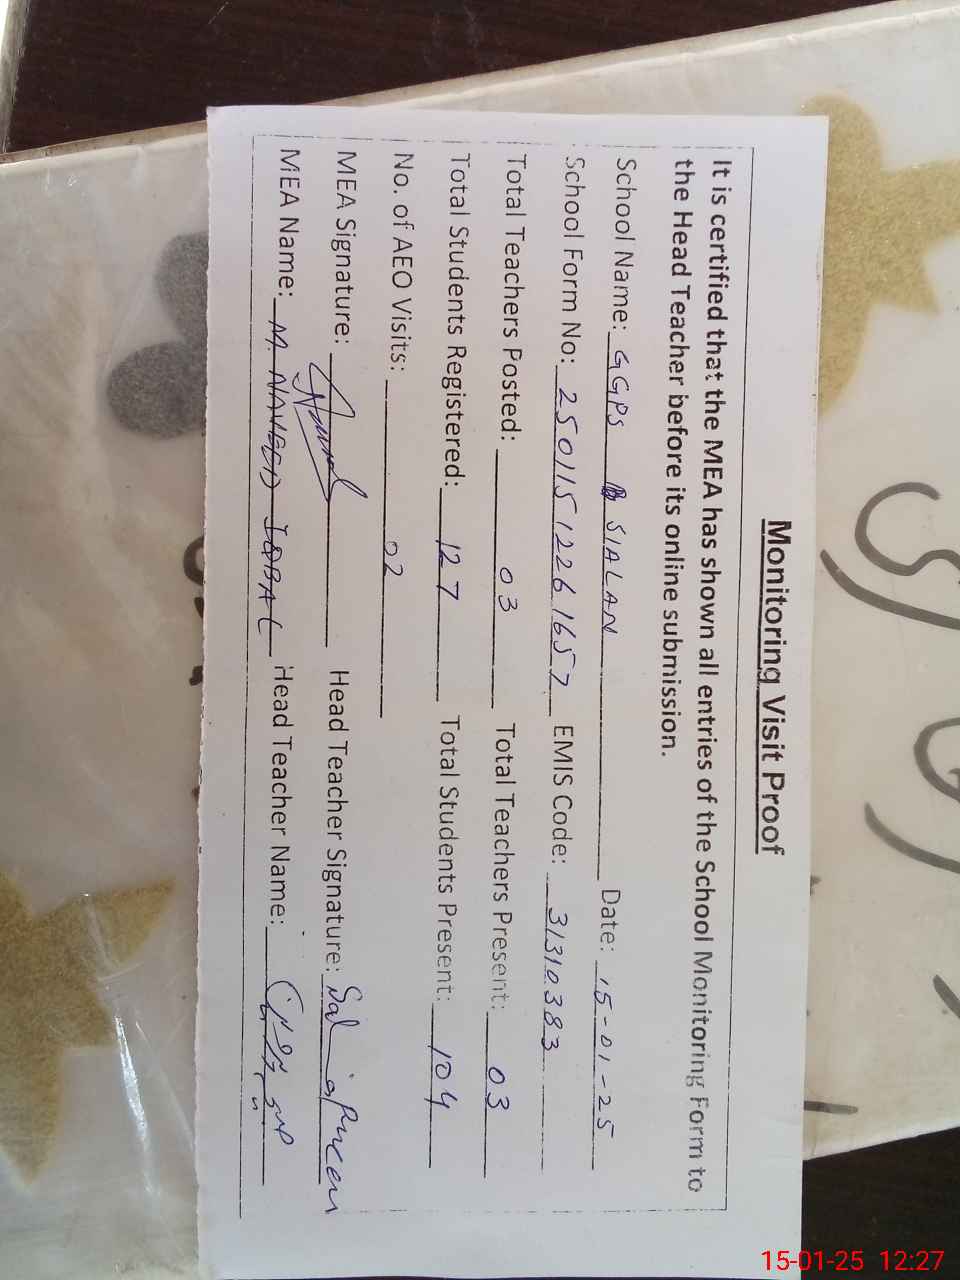 Monitoring Visit Proof
It is certified that the MEA has shown all entries of the School Monitoring Form to
the Head Teacher before its online submission.
School Name: GGPS SIALAN Date: 15-01-25
School Form No: 25011512261657 EMIS Code: 31310383
Total Teachers Posted: 03 Total Teachers Present: 03
Total Students Registered: 127 Total Students Present: 104
No. of AEO Visits: 02
MEA Signature: Head Teacher Signature:
MEA Name: M. NAVEED IQBAL Head Teacher Name:
15-01-25 12:27